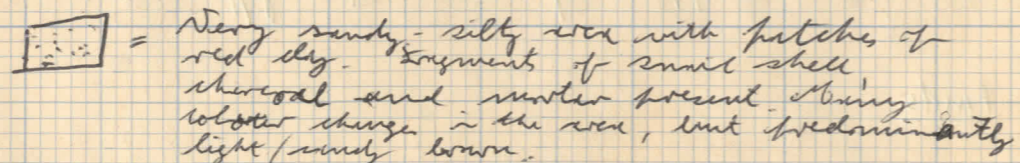 = Very sandy-silty area with patches of
red clay. Fragments of snail shell,
charcoal and mortar present. Many
colour changes in the area, but predominantly
light/sandy brown.